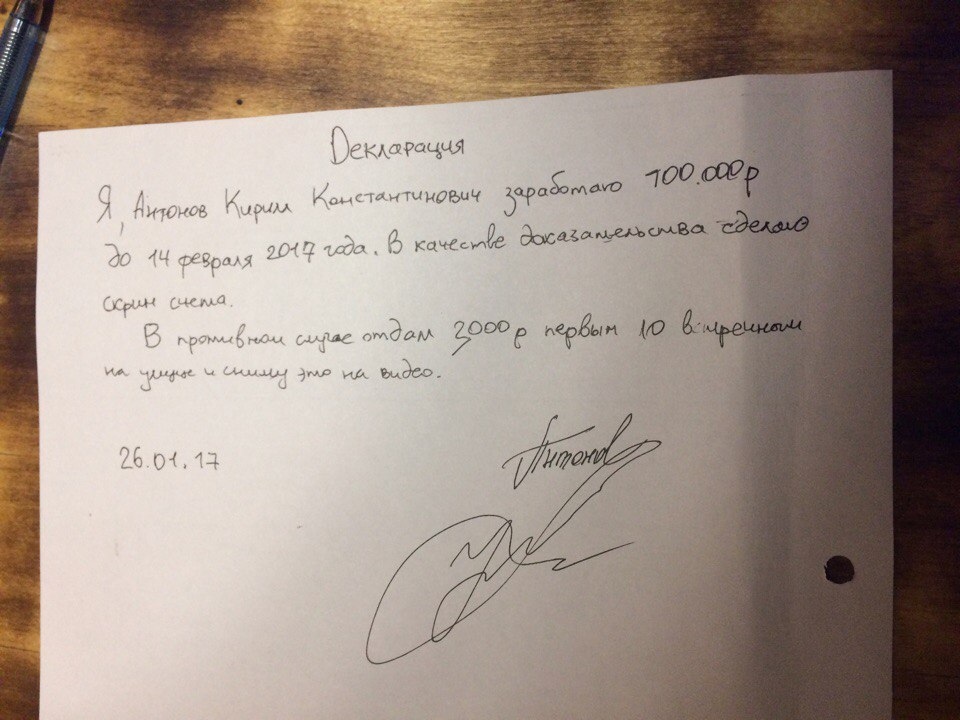 Декларация
Я, Антонов Кирилл Константинович заработаю 100.000р
до 14 февраля 2017 года. В качестве доказательства сделаю
скрин счета.
В противном случае отдам 3000р первым 10 встречным
на улице и сниму это на видео.
26.01.17
Антонов